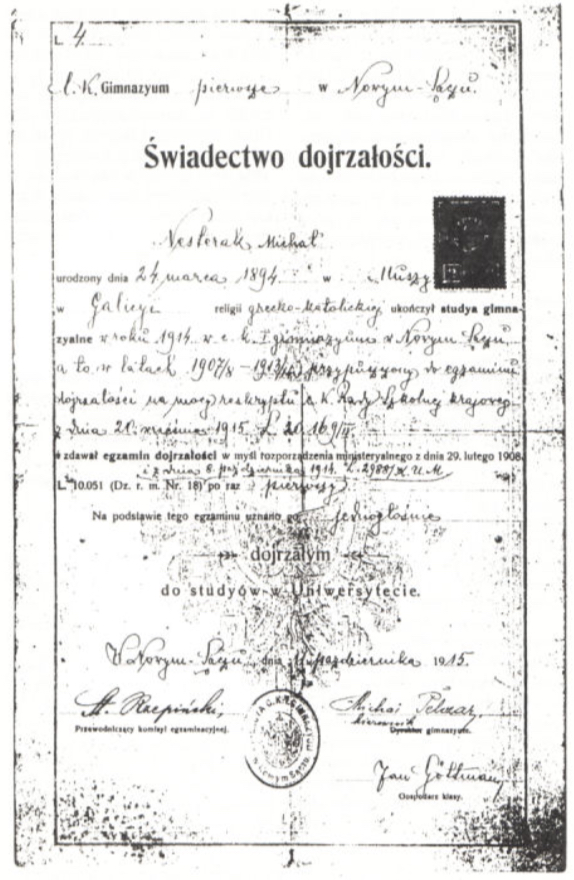 L. 4.
C. K. Gimnazyum pierwsze w Nowym-Sączu.
Świadectwo dojrzałości.
Nesterak Michał
urodzony dnia 24 marca 1894 w
w Galicyi religii grecko-katolickiej, ukończył studya gimna-
zyalne w roku 1914 w c. k. I gimnazyum w Nowym Sączu,
a to w latach 1907/8 – przypuszczony do egzaminu
dojrzałości na mocy reskryptu c. K. Rady Szkolnej krajowej
z dnia 20. września 1915 L.
i zdawał egzamin dojrzałości w myśl rozporządzenia ministeryalnego z dnia 29. lutego 1908
i z dnia 6. października 1914. L.
L. 10.051 (Dz. r. m. Nr. 18) po raz pierwszy
Na podstawie tego egzaminu uznano go jednogłośnie
dojrzałym
do studyów w Uniwersytecie.
W Nowym-Sączu, dnia października 1915.
St. Rzepiński, Michał Pelczar,
kierownik
Przewodniczący komisyi egzaminacyjnej. Dyrektor gimnazyum.
Jan
Gospodarz klasy.